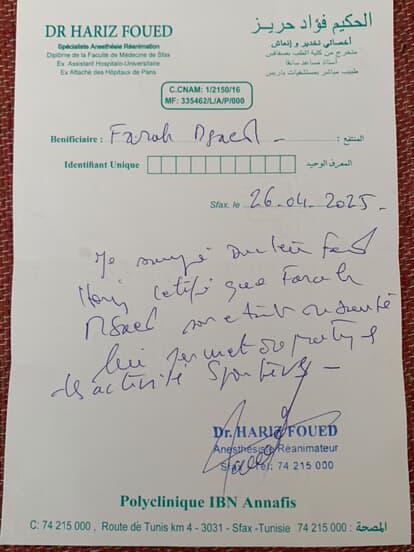 DR HARIZ FOUED
الحكيم فؤاد حريز
Spécialiste Anesthésie Réanimation
أخصائي تخدير و إنعاش
Diplôme de la Faculté de Médecine de Sfax
متخرج من كلية الطب بصفاقس
Ex. Assistant Hospitalo-Universitaire
أستاذ مساعد سابقا
Ex Attaché des Hôpitaux de Paris
طبيب مباشر بمستشفيات باريس
C.CNAM: 1/2150/16
MF: 335462/L/A/P/000
Benificiaire : Farah :المنتفع
Identifiant Unique المعرف الوحيد
Sfax. le 26.04.2025.
Je
certifie que Farah
son état de santé
lui permet de pratiquer
des activité sportives
Dr. HARIZ FOUED
Anesthésiste Réanimateur
Sfax Tél: 74 215 000
Polyclinique IBN Annafis
C: 74 215 000 , Route de Tunis km 4 - 3031 - Sfax -Tunisie 74 215 000 : المصحة